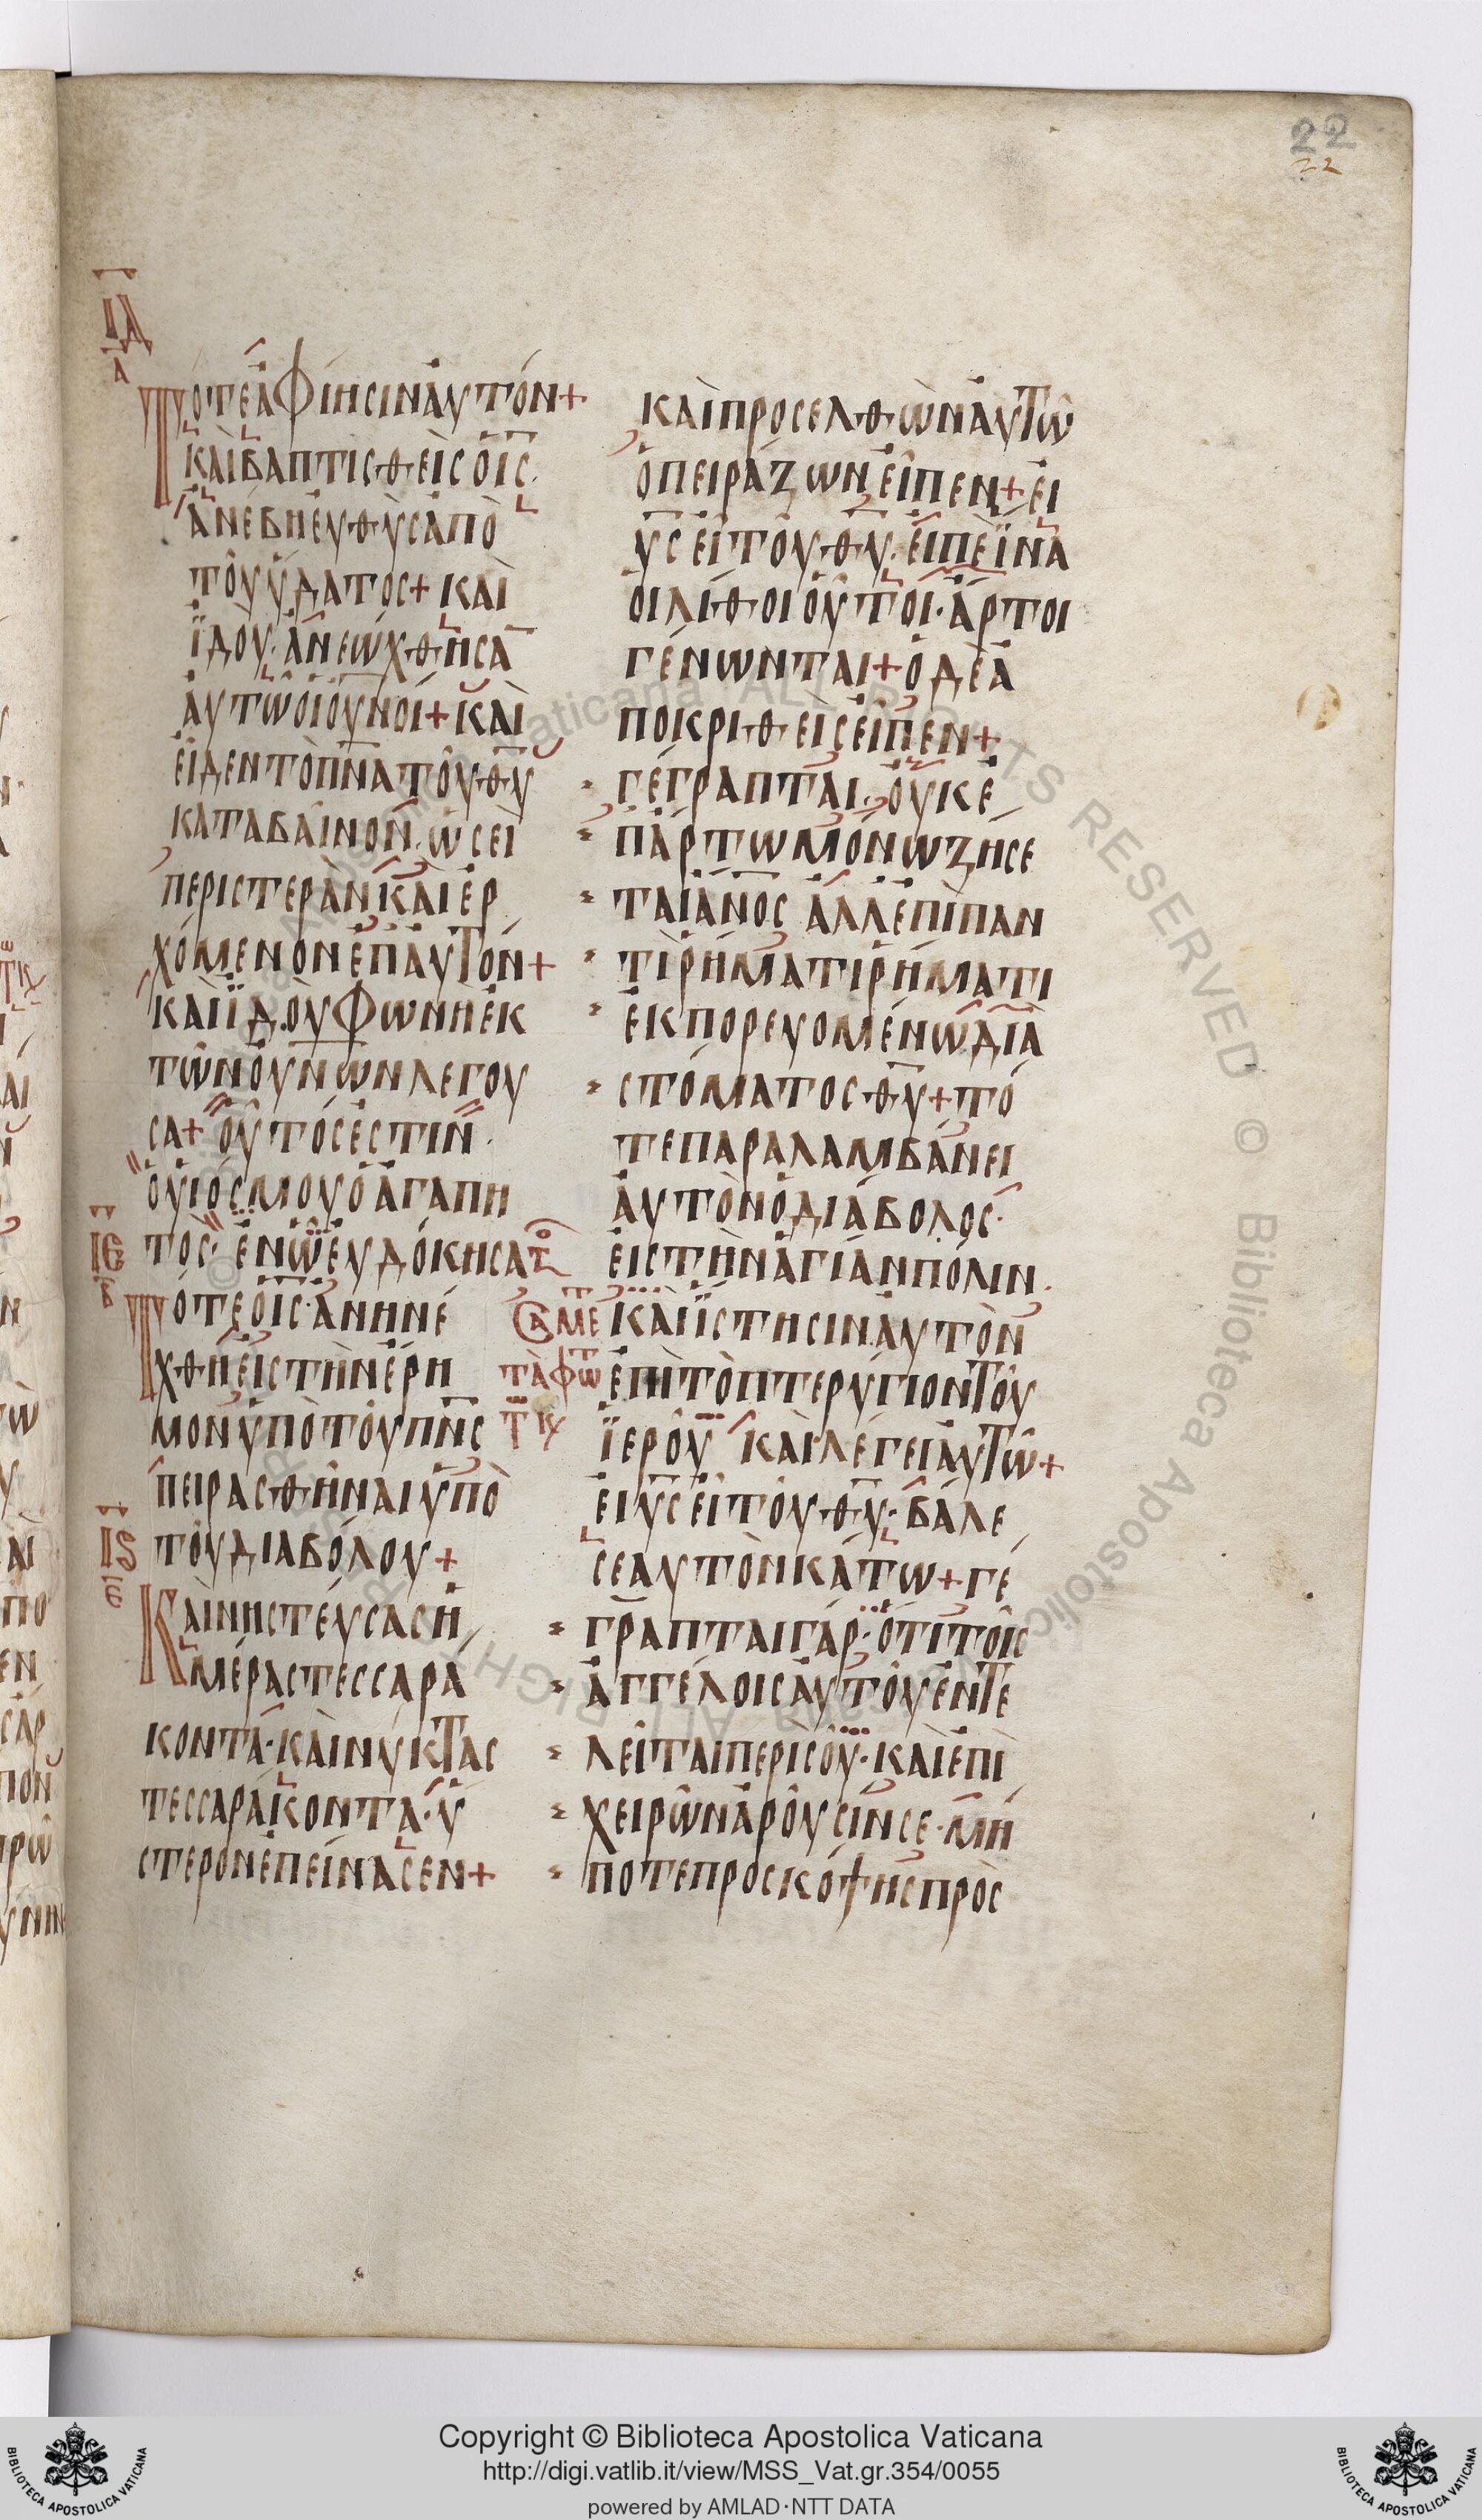 22
22
ΙΔ
Α
Τότε ἀφίησιν αὐτόν+
καὶ βαπτισθεὶς ὁ ΙΣ·
ἀνέβη εὐθὺς ἀπὸ
τοῦ ὕδατος+ καὶ
ἰδού· ἀνεώχθησα̅
αὐτῶ οἱ ΟΥΝΟΙ+ καὶ
εἶδεν τὸ ΠΝΑ τοῦ ΘΥ
καταβαῖνον· ὡσεὶ
περιστερὰν καὶ ἐρ
χόμενον ἐπ αὐτόν+
καὶ ἰδοὺ φωνὴ ἐκ
τῶν ΟΥΝΩΝ λέγου
σα+ οὗτός ἐστιν·
ὁ υἱός μου ὁ ἀγαπη
τός· ἐν ὧ εὐδόκησα
ΙΕ
Β
Τότε ὁ ΙΣ· ἀνηνέ
χθη εἰς τὴν ἔρη
μον ὑπὸ τοῦ ΠΝΣ
πειρασθῆναι ὑπὸ
τοῦ διαβόλου+
ΙϚ
Ε
Καὶ νηστεύσας ἡ
μέρας τεσσαρά
κοντα· καὶ νύκτας
τεσσαράκοντα· ὕ
στερον ἐπείνασεν+
καὶ προσελθὼν αὐτῶ
ὁ πειράζων εἶπεν+ εἰ
ΥΣ εἶ τοῦ ΘΥ· εἰπὲ ἵνα
οἱ λίθοι οὗτοι· ἄρτοι
γένωνται+ ὁ δὲ ἀ
ποκριθεὶς εἶπεν+
γέγραπται· οὐκ ἐ
π ἄρτω μόνω ζήσε
ται ΑΝΟΣ ἀλλ ἐπὶ παν
τὶ ῥήματι ῥήματι
ἐκπορευομένω διὰ
στόματος ΘΥ+ τό
τε παραλαμβάνει
αὐτὸν ὁ διάβολος·
εἰς τὴν ἁγίαν πόλιν·
καὶ ἵστησιν αὐτὸν
ἐπὶ τὸ πτερύγιον τοῦ
ἱεροῦ καὶ λέγει αὐτῶ+
εἰ ΥΣ εἶ τοῦ ΘΥ· βάλε
σεαυτὸν κάτω+ γέ
γραπται γάρ· ὅτι τοῖς
ἀγγέλοις αὐτοῦ ἐντε
λεῖται περὶ σοῦ· καὶ ἐπὶ
χειρῶν ἀροῦσίν σε· μή
ποτε προσκόψης πρὸς
Copyright © Biblioteca Apostolica Vaticana
http://digi.vatlib.it/view/MSS_Vat.gr.354/0055
powered by AMLAD·NTT DATA
BIBLIOTECA APOSTOLICA VATICANA
BIBLIOTECA APOSTOLICA VATICANA